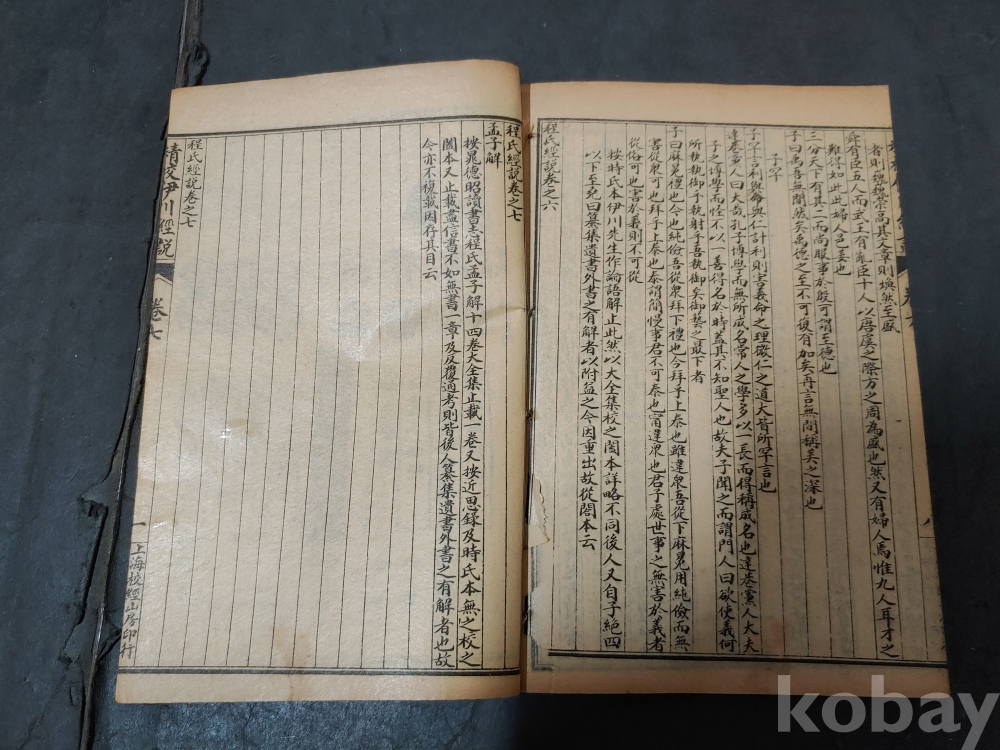 者則巍巍崇高其文章則煥然至盛
舜有臣五人而武王有亂臣十人以唐虞之際方之周為盛也然又有婦人焉惟九人耳才之
難得如此婦人邑姜也
三分天下有其二而尚服事於殷可謂至德也
子曰禹吾無間然矣禹德之至不可復有加矣再言無間稱美之深也
子罕
子罕言利與命與仁計利則害義命之理微仁之道大皆所罕言也
達巷黨人曰大哉孔子博學而無所成名常人之學多以一長而得稱成名也達巷黨人大夫
子之博學而怪不以一善得名於時蓋其不知聖人也故夫子聞之而謂門人曰欲使義何
所執執御乎執射乎吾執御矣御藝之最下者
子曰麻冕禮也今也純儉吾從衆拜下禮也今拜乎上泰也雖違衆吾從下麻冕用純儉而無
害從衆可也拜乎上泰也泰謂簡慢事君不可泰也甯違衆也君子處世事之無害於義者
從俗可也害於義則不可從
按時氏本伊川先生作論語解止此然以大全集校之閣本詳略不同後人又自子絶四
以下至堯曰纂集遺書外書之有解者以附益之今因重出故從閣本云
程氏經說卷之六
程氏經說卷之七
孟子解
按晁德昭讀書志程氏孟子解十四卷大全集止載一卷又按近思録及時氏本無之校之
閣本又止載盡信書不如無書一章及反覆通考則皆後人纂集遺書外書之有解者也故
今亦不複載因存其目云
程氏經說卷之七
精校伊川經說
卷七
一
上海校經山房印行
kobay